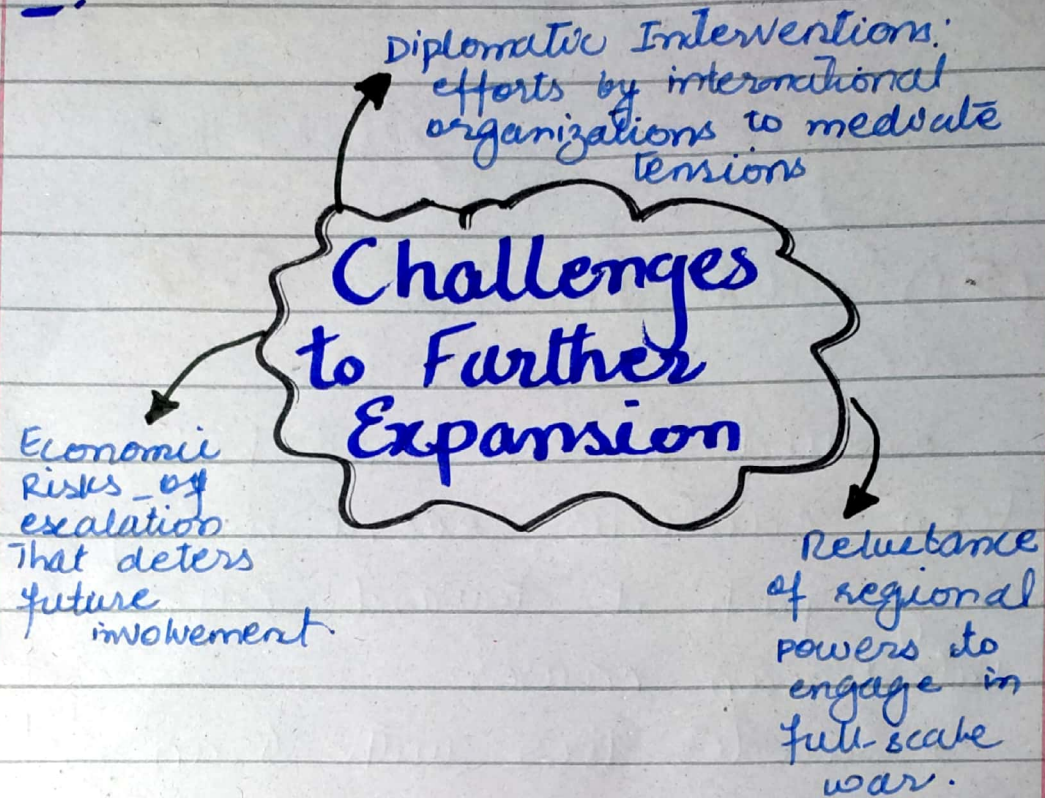 Diplomatic Interventions:
efforts by international
organizations to mediate
tensions
Challenges
to Further
Expansion
Economic
Risks of
escalation
That deters
future
involvement.
Reluctance
of regional
powers to
engage in
full-scale
war.